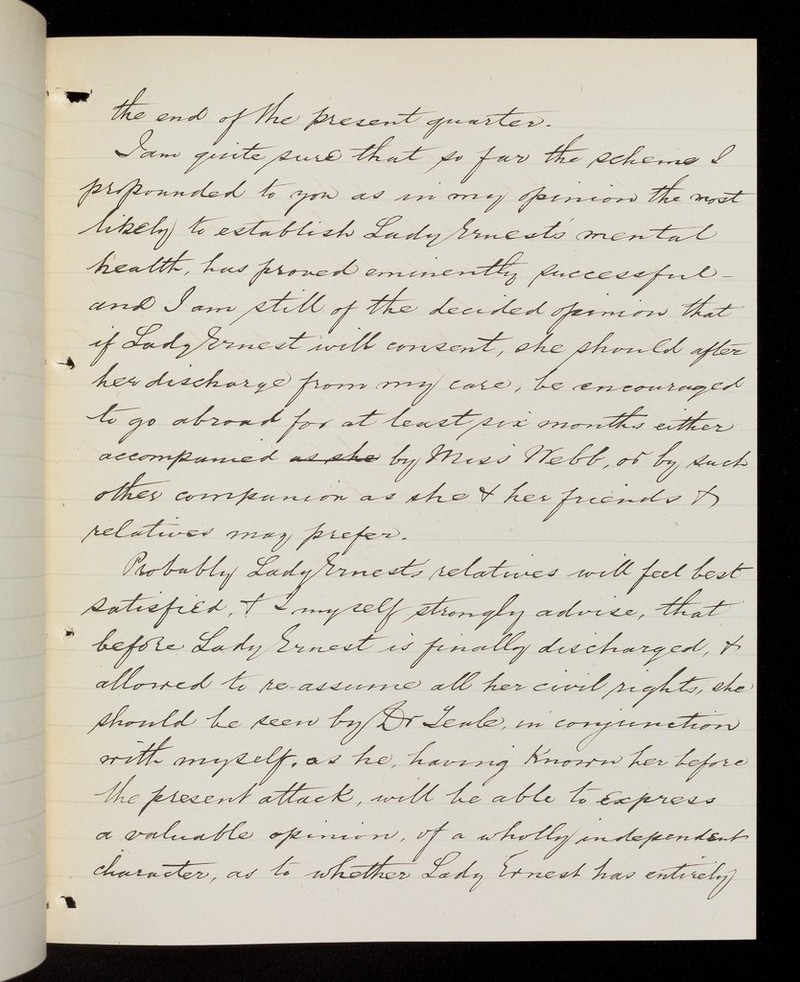 the end of the present quarter.
I am quite sure that so far the scheme I
propounded to you as in my opinion the most
likely to establish Lady Ernest's mental
health, has proved eminently successful -
and I am still of the decided opinion that
if Lady Ernest will consent, she should after
her discharge from my care, be encouraged
to go abroad for at least six months either
accompanied as she by Miss Webb, or by such
other companion as she & her friends &
relatives may prefer.
Probably Lady Ernests relatives will feel best
satisfied, & I myself strongly advise, that
before Lady Ernest is finally discharged, &
allowed to re-assume all her civil rights, she
should be seen by Dr Teale, in conjunction
with myself, as he, having known her before
the present attack, will be able to express
a valuable opinion, of a wholly independent
character, as to whether Lady Ernest has entirely